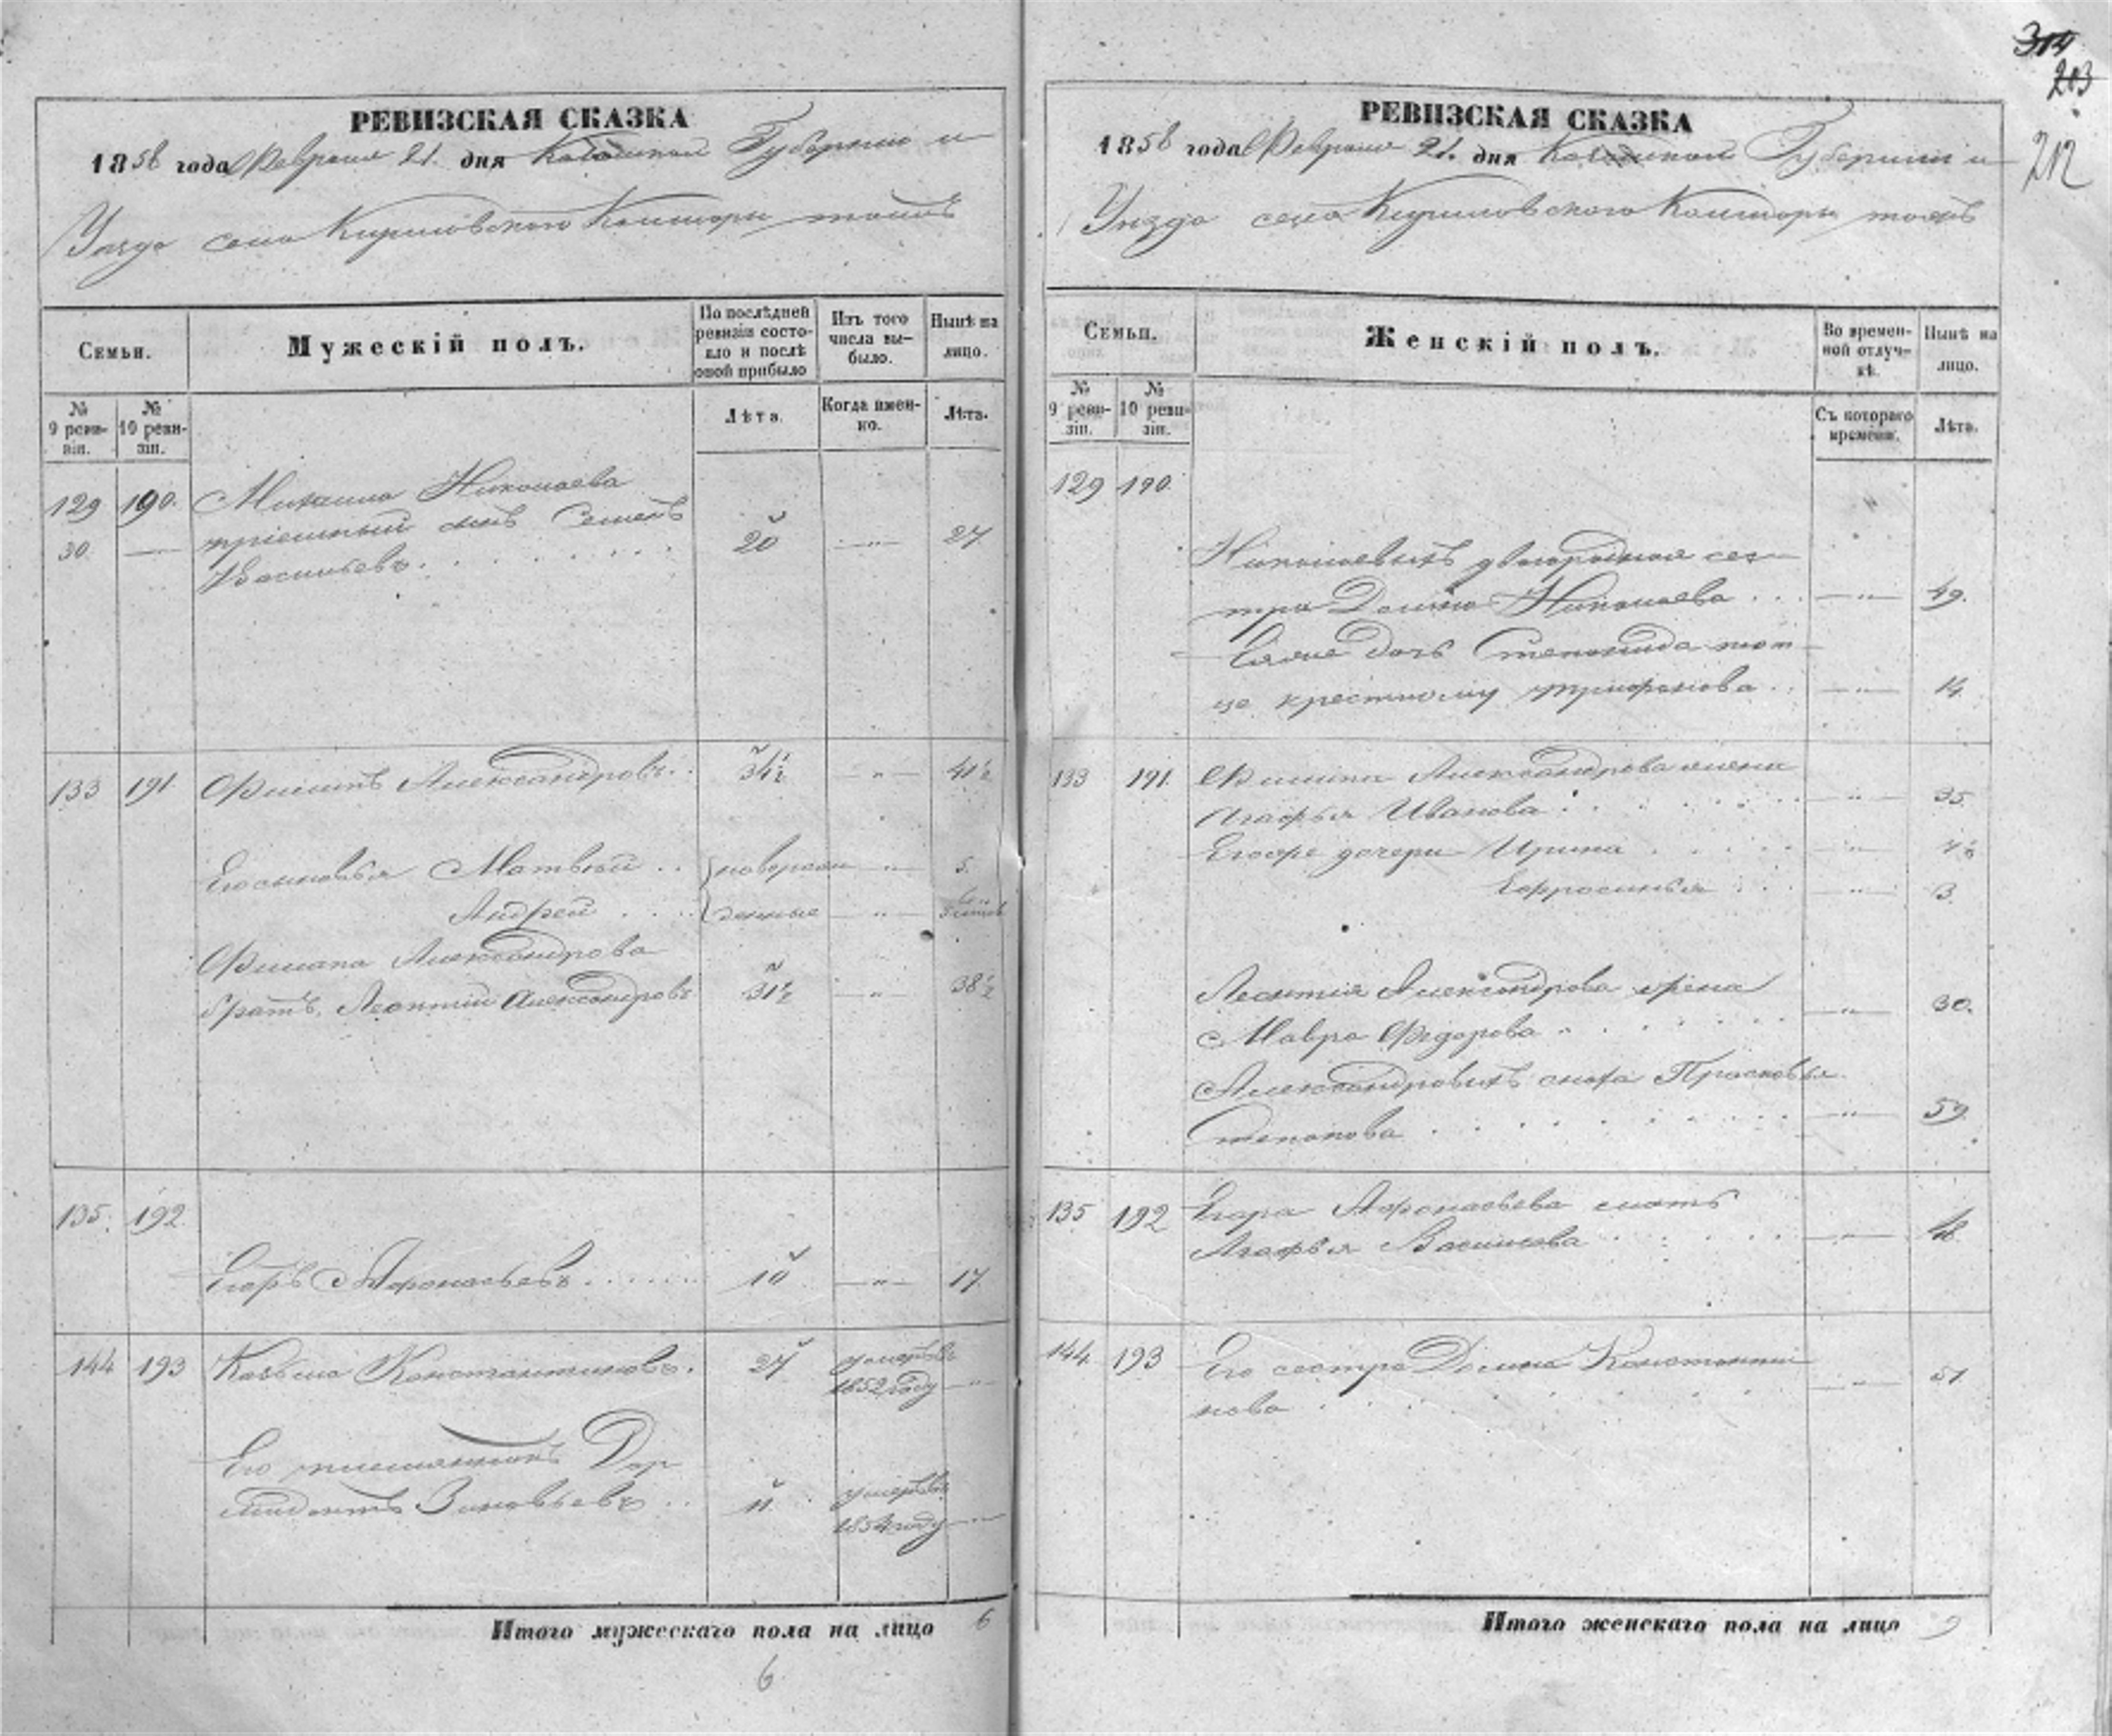 314
203
212
РЕВИЗСКАЯ СКАЗКА
1858 года Февраля 21. дня Губернии и
Уезда села Конторы
Семьи.
Мужескій полъ.
По послѣдней ревизіи состояло и послѣ оной прибыло
Изъ того числа выбыло.
Нынѣ на лицо.
№ 9 ревизіи.
№ 10 ревизіи.
Лѣта.
Когда именно.
Лѣта.
129 190. Михаила Николаева
30 — пріемный сынъ Семенъ 20 — " — 27
Васильевъ
133 191 Филипъ Александровъ 34½ — " — 41½
Его сыновья Матвѣй новорож " 5.
Андрей денные — " —
Филипа Александрова
братъ Леонтій Александровъ 31½ — " — 38½
135. 192
Егоръ Афонасьевъ 10 — " — 17
144 193 Козьма Константиновъ. 27 умеръ въ 1852 году — " —
Его племянникъ Дор
мидонтъ Зиновьевъ 11. умеръ въ 1854 году — " —
Итого мужескаго пола на лицо 6
6
РЕВИЗСКАЯ СКАЗКА
1858 года Февраля 21. дня Губерніи и
Уезда села Конторы
Семьи.
Женскій полъ.
Во временной отлучкѣ.
Нынѣ на лицо.
№ 9 ревизіи.
№ 10 ревизіи.
Съ котораго времени.
Лѣта.
129 190
Николаевыхъ двоюродная сес
тра Домна Николаева — " — 49.
дочь Степанида
по крестному Трифонова — " — 14.
133 191. Филипа Александрова жена
Агафья Иванова — " — 35.
дочери Ирина — " —
Ефросинья — " — 3.
Леонтія Александрова жена
Мавра Федорова — " — 30.
Александровыхъ сноха Прасковья
Степанова — " — 59.
135 192 Егора Афонасьева мать
Агафья Васильева — " — 48.
144 193 Его сестра Домна Константи
нова — " — 51
Итого женскаго пола на лицо 9